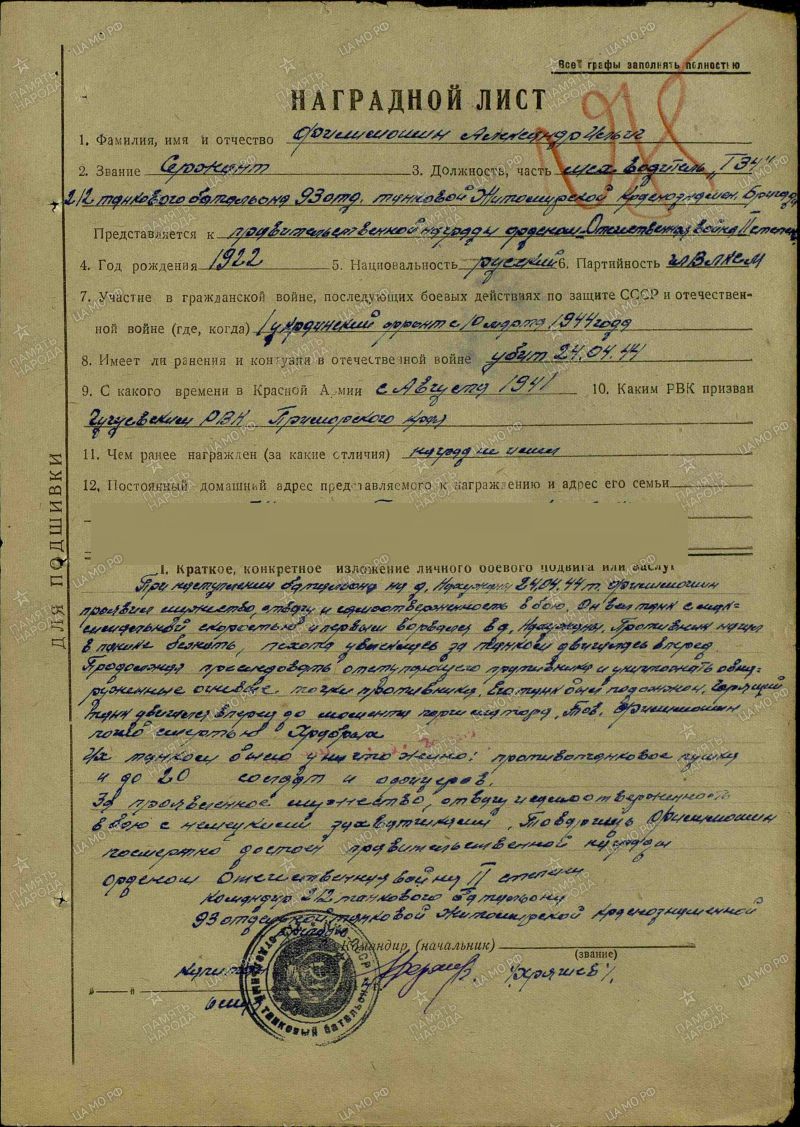 Все графы заполнять полностью
НАГРАДНОЙ ЛИСТ
1. Фамилия, имя и отчество Филимошин Александр Ильич
2. Звание Сержант 3. Должность, часть мех. водитель „Т34"
212 танкового батальона 93 отд. танковой Житомирской Краснознамен. Бригады
Представляется к правительственной награды орденом Отечественная война II степени
4. Год рождения 1922 5. Национальность русский 6. Партийность чл ВЛКСМ
7. Участие в гражданской войне, последующих боевых действиях по защите СССР и отечествен-
ной войне (где, когда) 1 украинский фронт с 10 марта 1944 года
8. Имеет ли ранения и контузии в отечественной войне убит 24.04.44
9. С какого времени в Красной Армии с Августа 1941 10. Каким РВК призван
Чугуевским РВК Приморского края
11. Чем ранее награжден (за какие отличия) наград не имел
12. Постоянный домашний адрес представляемого к награждению и адрес его семьи
ДЛЯ ПОДШИВКИ
I. Краткое, конкретное изложение личного боевого подвига или заслуг
При наступлении батальона на д. 24.04.44 г. Филимошин
проявил мужество, отвагу и самоотверженность в бою. Он вел танк с мак-
симальной скоростью и первым ворвался в д. Противник начал
в панике бежать, пехота двигалась вперед.
Продолжая преследовать отступающего противника и уничтожать обна-
руженные огневые точки противника, его танк был подожжен. Горящий
танк двигался вперед до момента мотора. Тов. Филимошин
погиб смертью Храбрых
Их танком было уничтожено: противотанковое пушки
и до 20 солдат и офицеров.
За проявленное мужество, отвагу и самоотверженность
в бою с немецкими захватчиками, Товарищ Филимошин
посмертно достоин правительственной награды
орденом Отечественная война II степени
Командир 212 танкового батальона
93 отдельной танковой Житомирской Краснознаменной
Командир (начальник)
(звание)
капитан /Хряшев/
танковый батальон